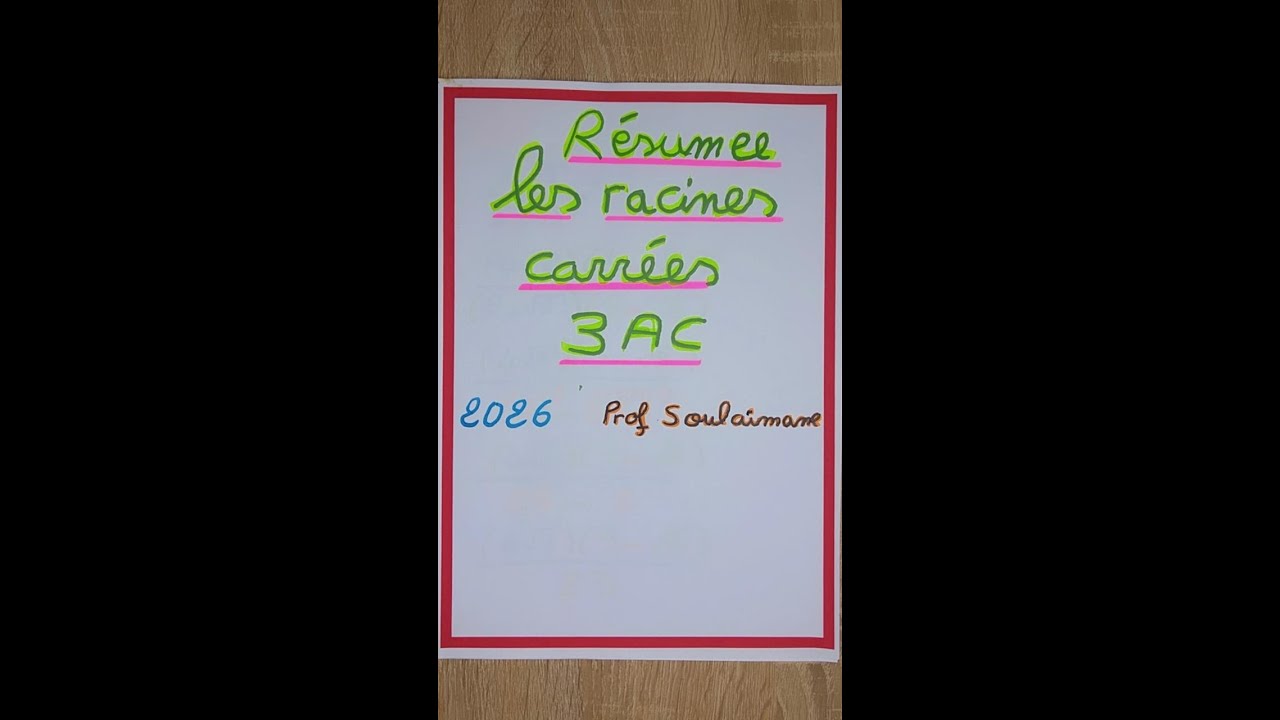 Résumee
les racines
carrées
3 AC
2026 Prof Soulaimane